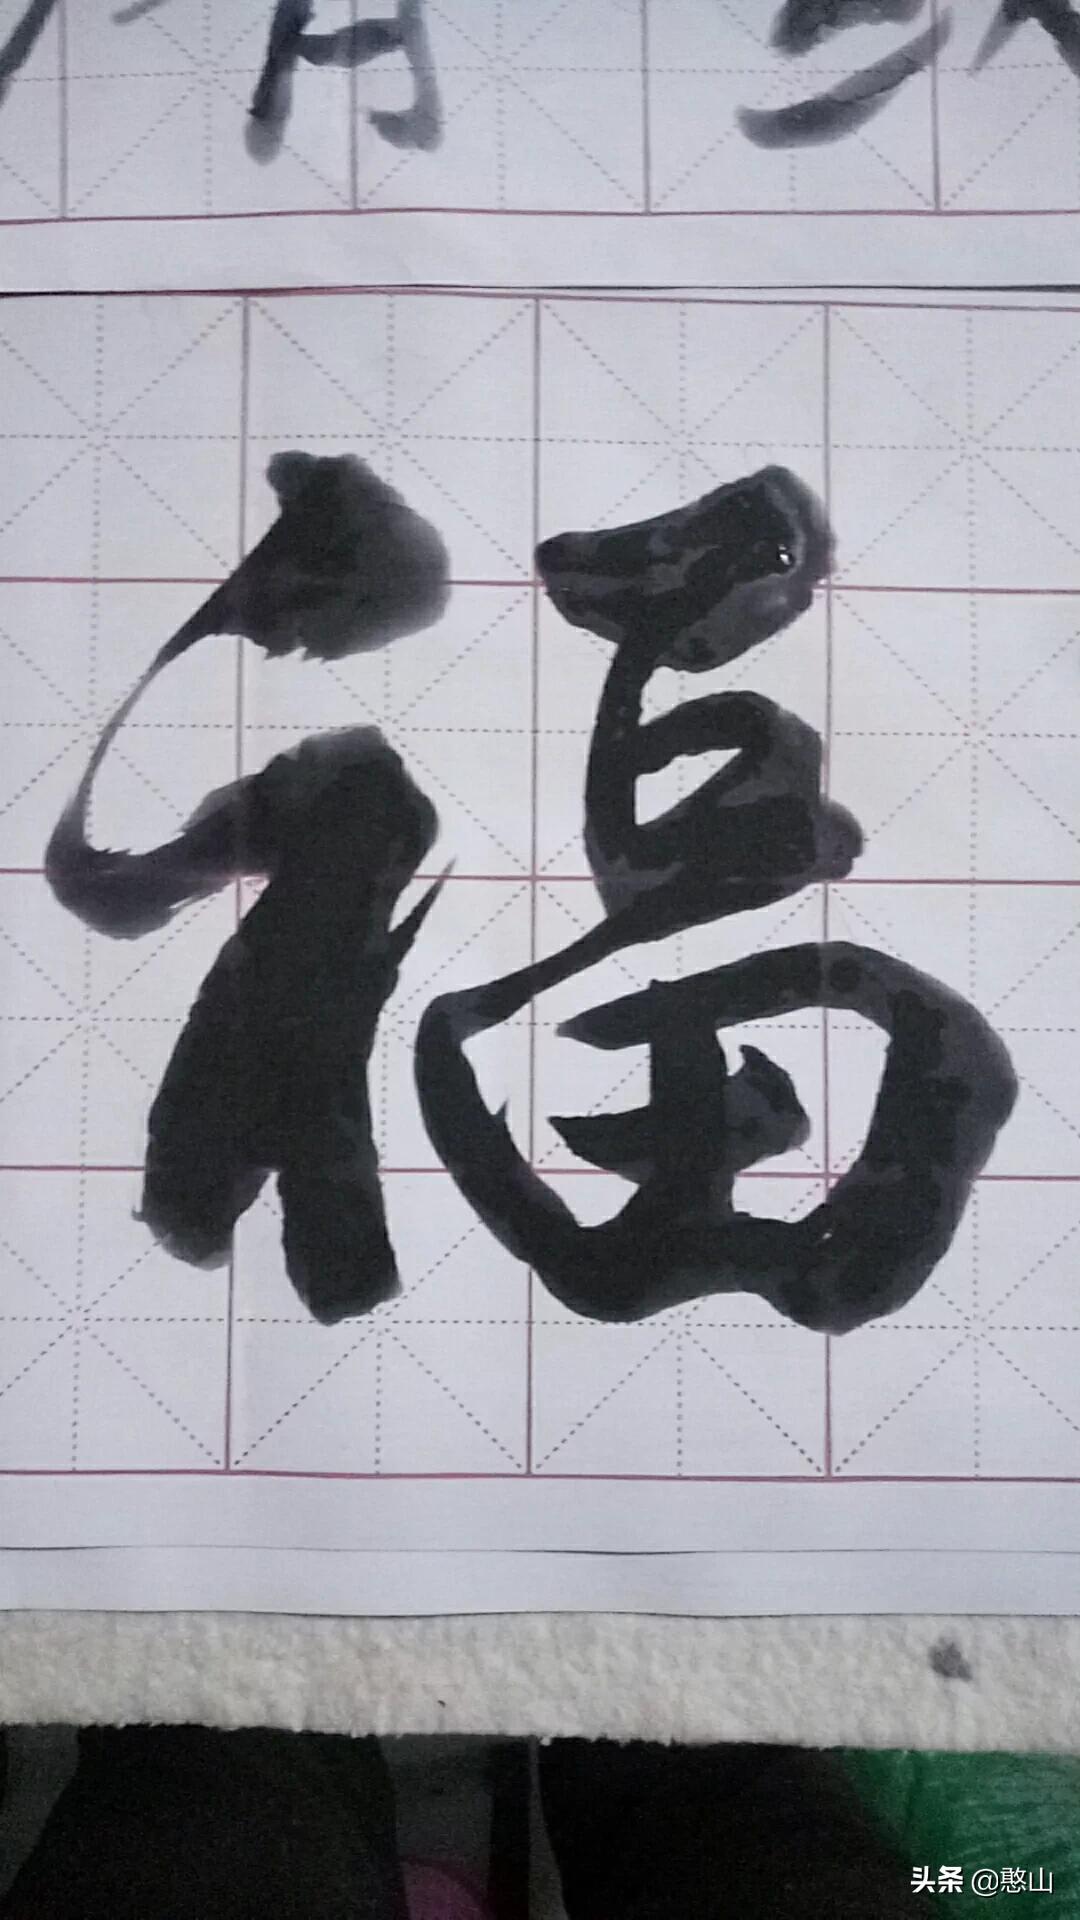 福
头条 @憨山